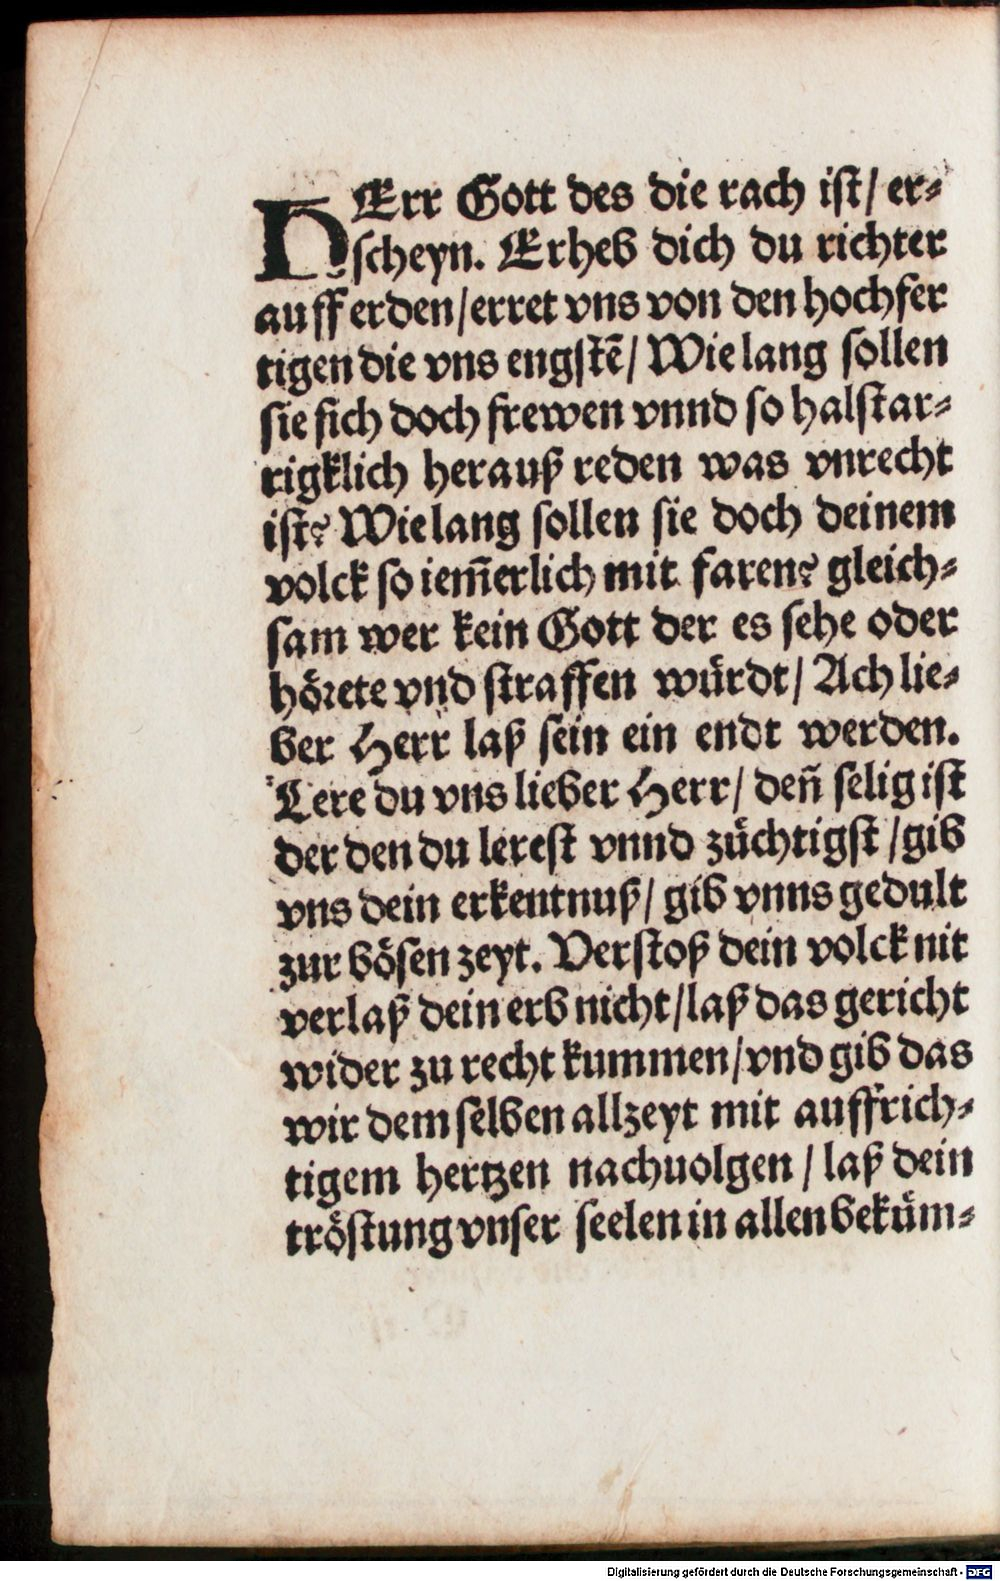 HErr Gott des die rach ist/ er⸗
scheyn. Erheb dich du richter
auff erden/erret vns von den hochfer
tigen die vns engstẽ/ Wie lang sollen
sie sich doch frewen vnnd so halstar⸗
rigklich herauß reden was vnrecht
ist? Wie lang sollen sie doch deinem
volck so iem̃erlich mit faren? gleich⸗
sam wer kein Gott der es sehe oder
hoͤrete vnd straffen wuͤrdt/ Ach lie⸗
ber Herr laß sein ein endt werden.
Lere du vns lieber Herr/ deñ selig ist
der den du lerest vnnd zuͤchtigst /gib
vns dein erkentnuß/ gib vnns gedult
zur boͤsen zeyt. Verstoß dein volck nit
verlaß dein erb nicht/laß das gericht
wider zu recht kummen/vnd gib das
wir dem selben allzeyt mit auffrich⸗
tigem hertzen nachuolgen / laß dein
troͤstung vnser seelen in allen bekuͤm⸗
Digitalisierung gefördert durch die Deutsche Forschungsgemeinschaft - DFG